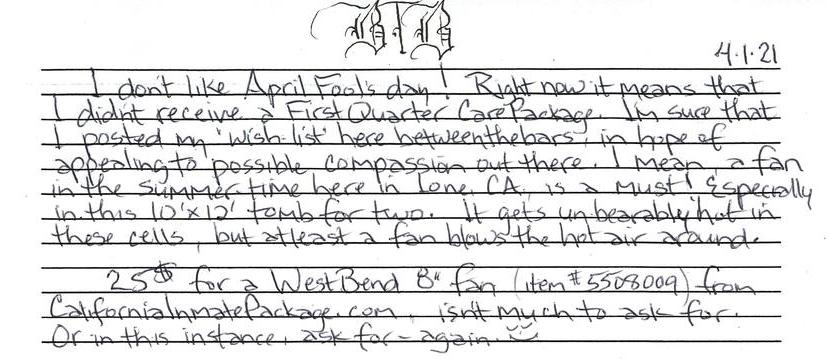 B.T.B
4.1.21
I don't like April Fool's day! Right now it means that
I didn't receive a First Quarter Care Package. I'm sure that
I posted my 'wish-list' here betweenthebars, in hope of
appealing to possible compassion out there. I mean, a fan
in the summer time here in Ione, CA, is a must! Especially
in this 10'x12' tomb for two. It gets unbearably hot in
these cells, but atleast a fan blows the hot air around.
25$ for a West Bend 8" fan (item #5508009) from
CaliforniaInmatePackage.com, isn't much to ask for.
Or in this instance, ask for - again.